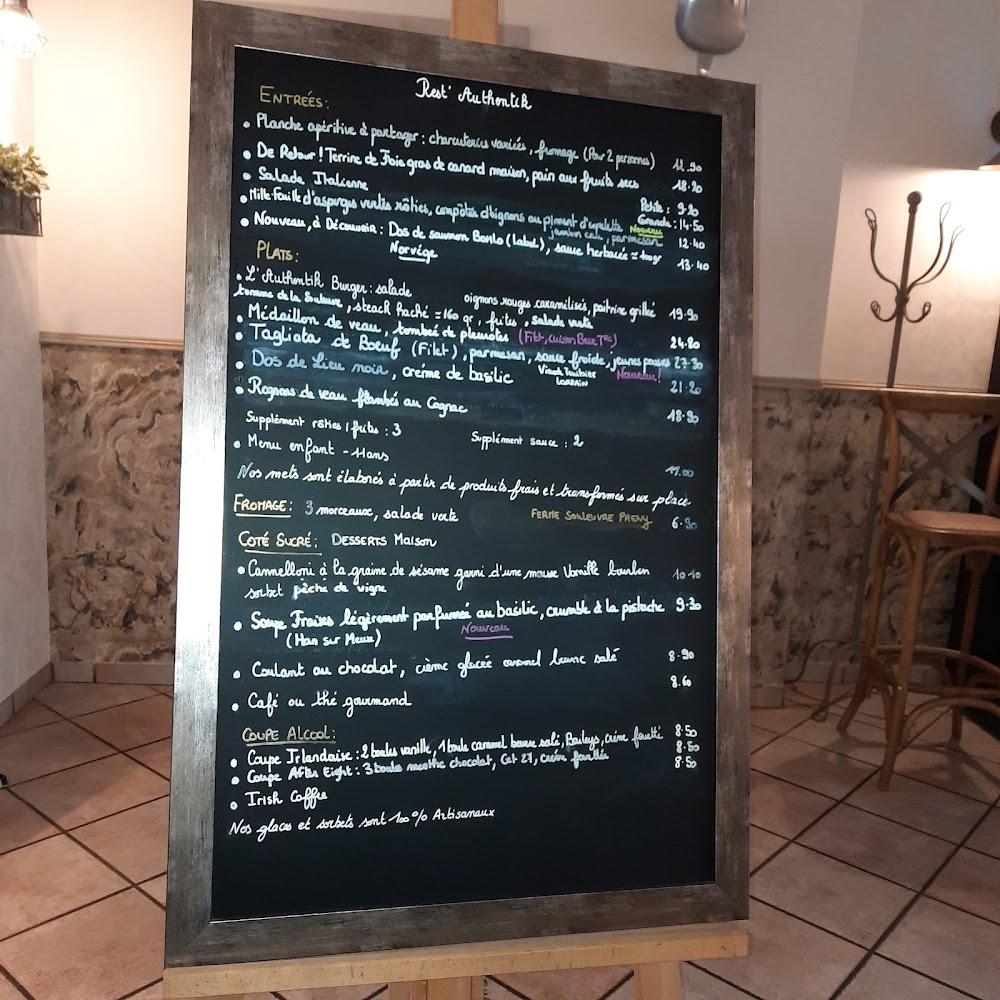 Rest' Authentik
ENTRÉES:
• Planche apéritive à partager : charcuteries variées, fromage (Pour 2 personnes)
• De Retour ! Terrine de Foie gras de canard maison, pain aux fruits secs 18.20
• Salade Italienne Petite : 9.20
Grande : 14.50
• Mille-Feuille d'asperges vertes rôties, compotée d'oignons au piment d'espelette Nouveau
parmesan 12.40
• Nouveau, à Découvrir : Dos de saumon (Label), sauce herbacée = 100gr 13.40
Norvège
PLATS:
• L'Authentik Burger : salade oignons rouges caramélisés, poitrine grillé
tomme de la , steack haché = 160 gr, frites, salade verte 19.90
• Médaillon de veau, tombée de pleurotes (Filet, cuisson Basse T°) 24.80
• Tagliata de Boeuf (Filet), parmesan, sauce froide, jeunes pousses 27.30
Lorrain Nouveau !
• Dos de Lieu noir, crème de basilic 21.20
• Rognons de veau flambés au Cognac 18.90
Supplément rôties / frites : 3 Supplément sauce : 2
• Menu enfant - 11ans 11.00
Nos mets sont élaborés à partir de produits frais et transformés sur place
FROMAGE: 3 morceaux, salade verte FERME SOULEUVRE PRENY 6.90
COTÉ SUCRÉ: DESSERTS MAISON
• Cannelloni à la graine de sésame garni d'une mousse Vanille bourbon 10.10
sorbet pêche de vigne
• Soupe Fraises légèrement parfumée au basilic, crumble à la pistache 9.30
(Han sur Meuse) Nouveau
• Coulant au chocolat, crème glacée caramel beurre salé 8.90
• Café ou thé gourmand 8.60
COUPE ALCOOL:
• Coupe Irlandaise : 2 boules vanille, 1 boule caramel beurre salé, Baileys, crème fouetté 8.50
• Coupe After Eight : 3 boules menthe chocolat, Get 27, crème fouettée 8.50
• Irish Coffee 8.50
Nos glaces et sorbets sont 100% Artisanaux